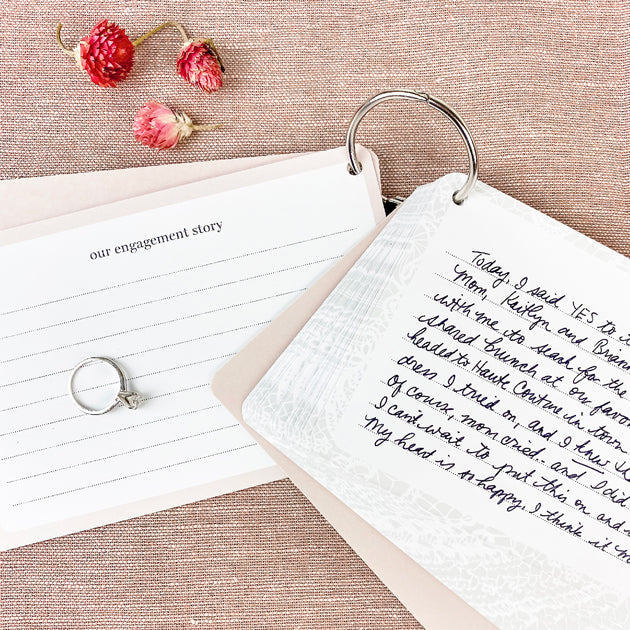 our engagement story
Today, I said YES to
mom, Kaitlyn and
with me to search for the
shared brunch at our
headed to Haute Couture in town
dress I tried on, and I knew
of course, mom cried.. and I did
I can't wait to put this on and
My head is so happy, I think it